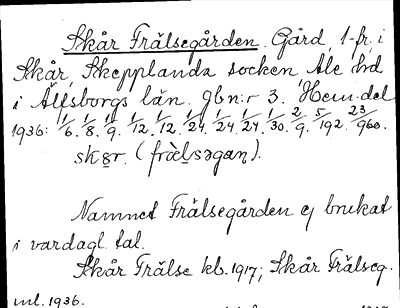 Skår Frälsegården. Gård, 1 fr, i
Skår, Skepplanda socken Ale hrd
i Älfsborgs län. Jbn:r 3. Hem.del
1936: 1/6. 1/8. 1/9. 1/12. 1/12. 1/24. 1/24. 1/24. 1/30. 2/9. 5/192. 23/960.
(
Namnet Frälsegården ej brukat
i vardagl. tal.
Skår Frälse kb. 1917; Skår Frälseg.
ml. 1936.